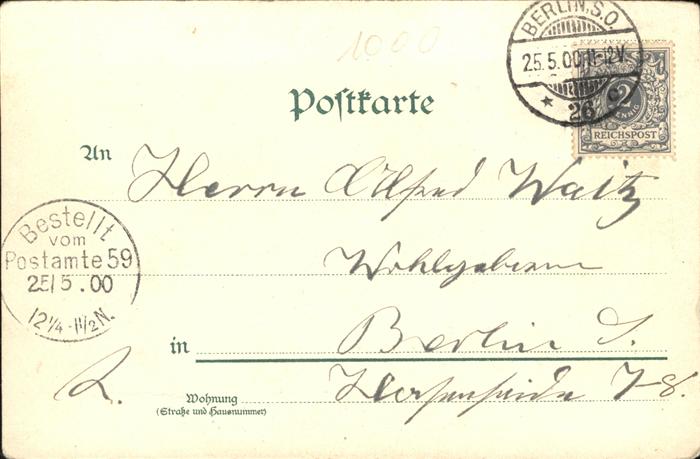 1000
BERLIN.S.O.
25.5.00.11-12V.
* 26 c
2
PFENNIG
REICHSPOST
Postkarte
An Herrn Alfred Waitz
Wohlgeboren
in Berlin S.
Wohnung
(Straße und Hausnummer)
7-8.
Bestellt
vom
Postamte 59
25/5.00
12 1/4 - 1 1/2 N.